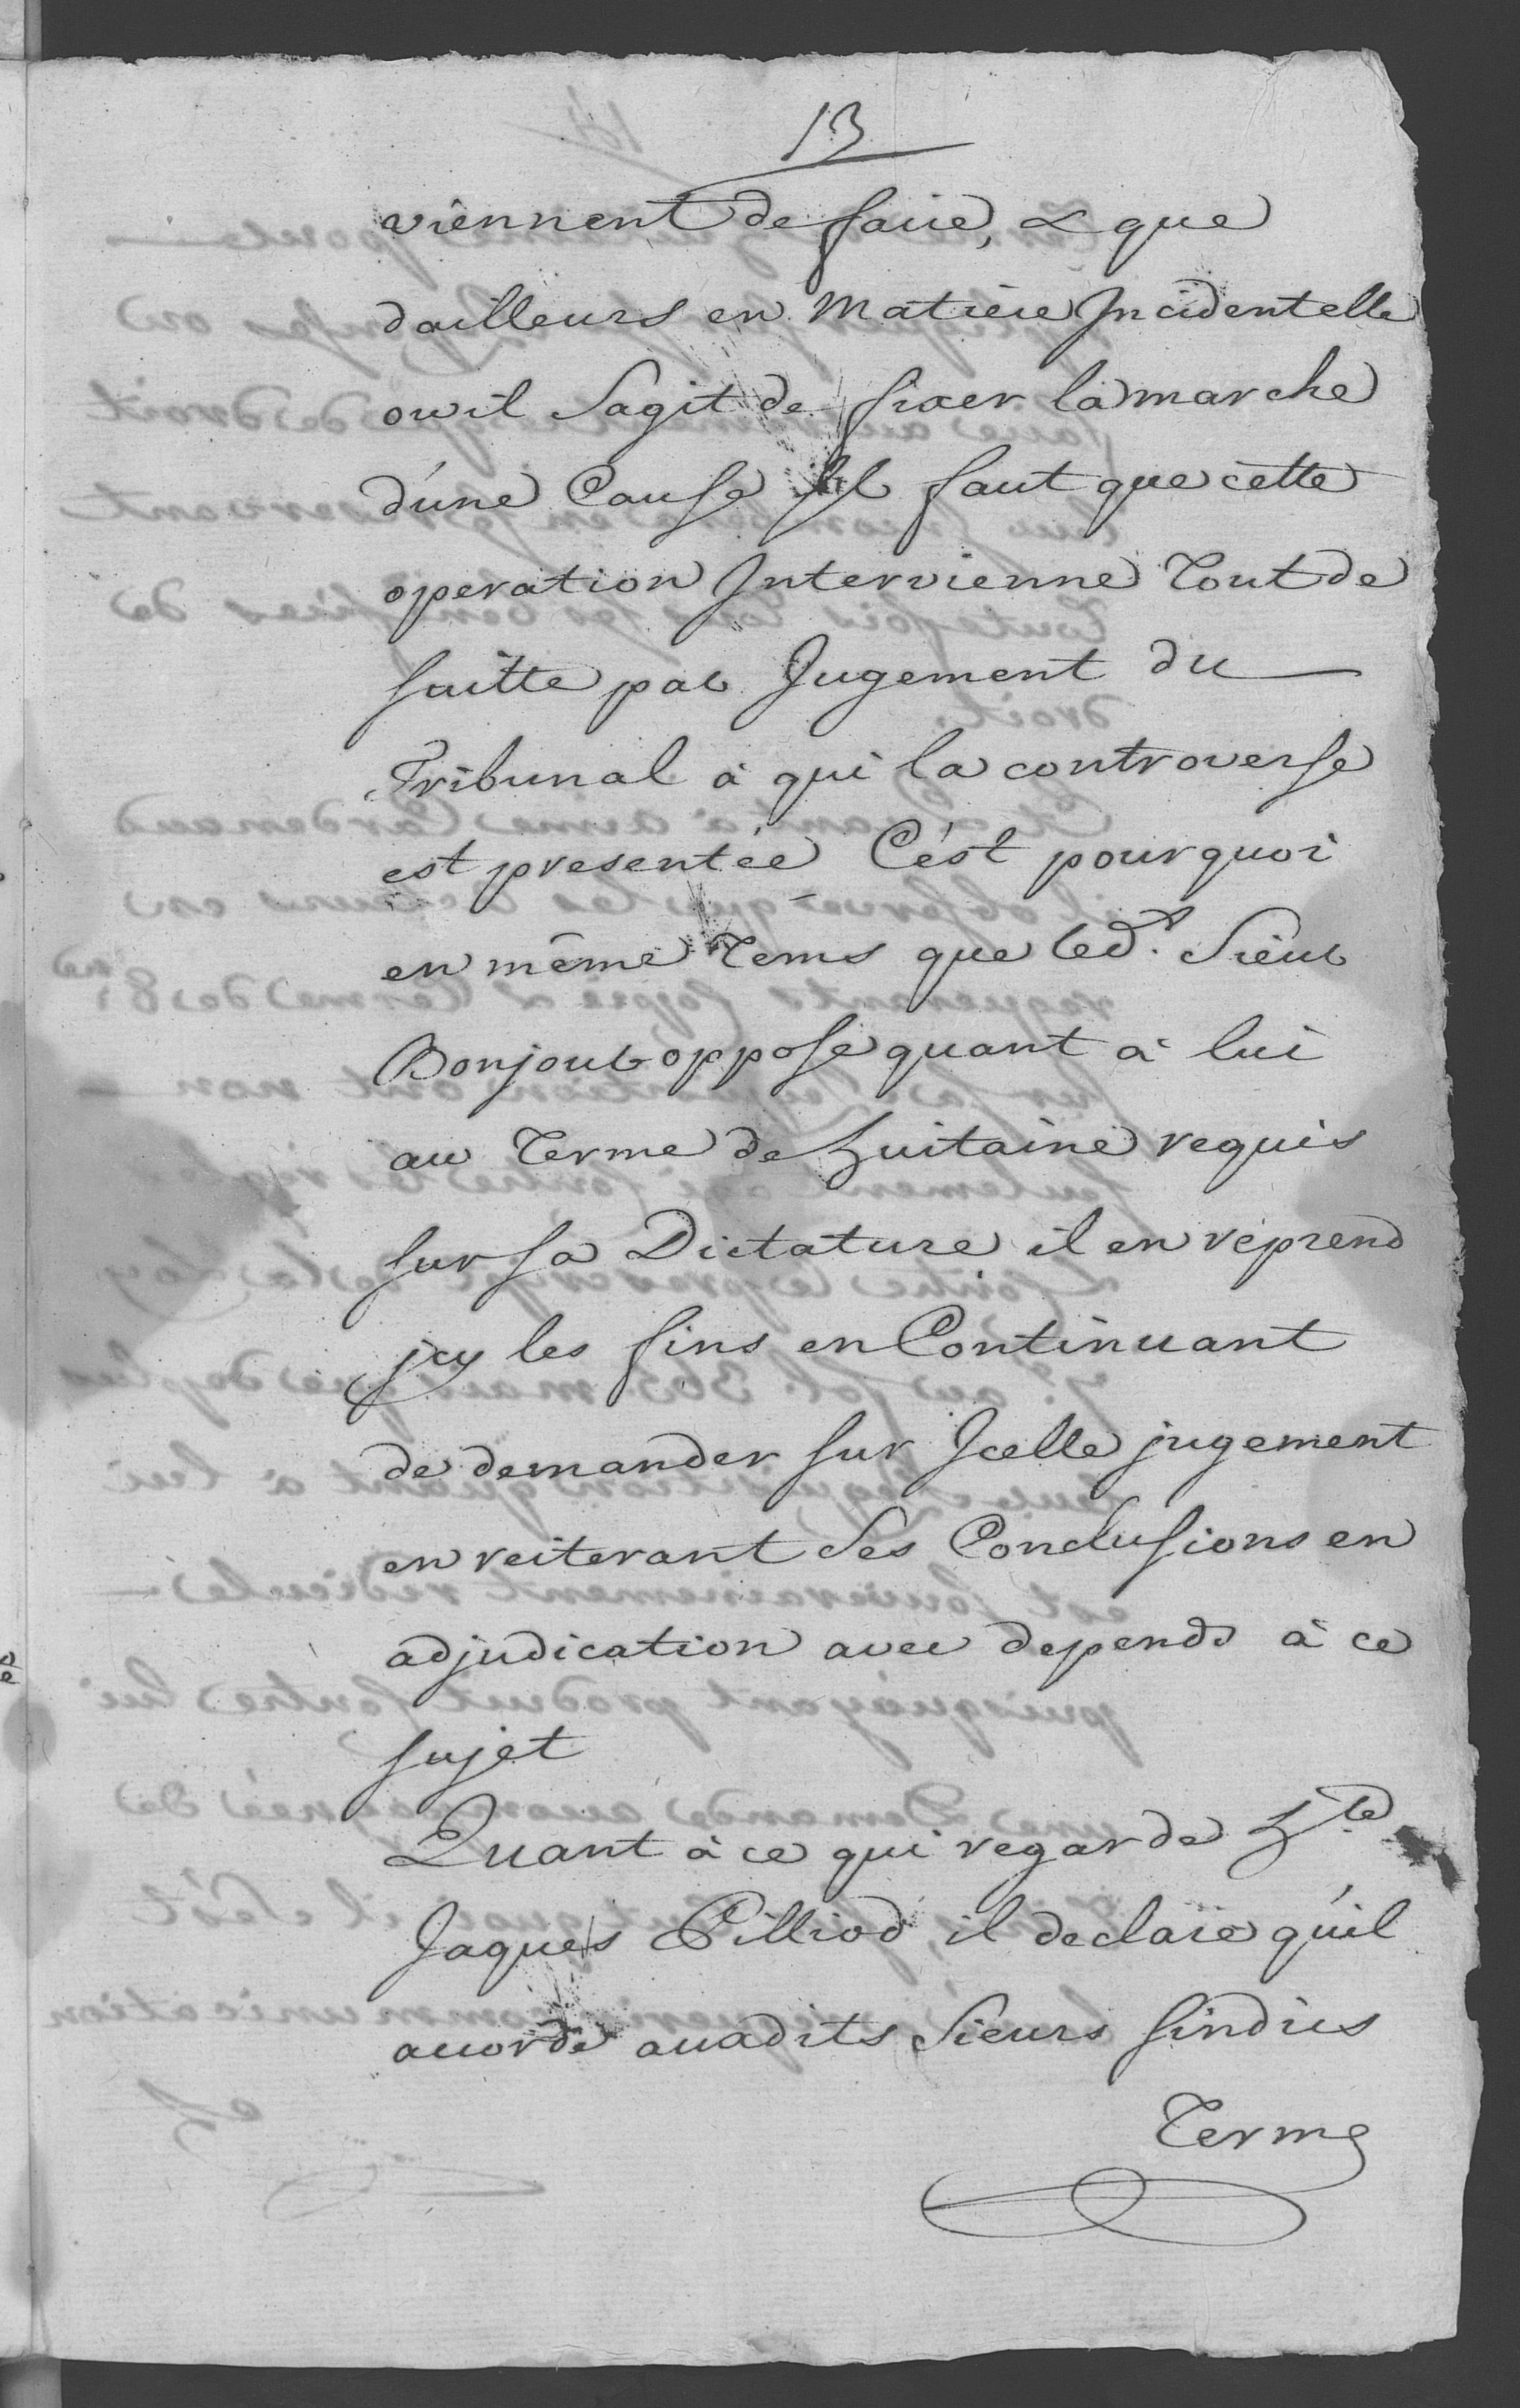 13
viennent de faire, & que
dailleurs en Matiere Incidentelle
ou il Sagit de fixer la marche
d'une Cause Il faut que cette
operation Intervienne Tout de
suitte par Jugement du
Tribunal à qui la controverse
est presentée C'est pourquoi
en même Tems que led.t Sieur
Bonjour oppose quant à lui
au Terme de huitaine requis
sur sa Dictature il en reprend
jcy les fins en Continuant
de demander sur Icelle jugement
en reiterant Ses Conclusions en
adjudication avec depends à ce
sujet
Quant à ce qui regarde
Jaques Pilliod il declare qu'il
accorde auxdits Sieurs sindics
Terme